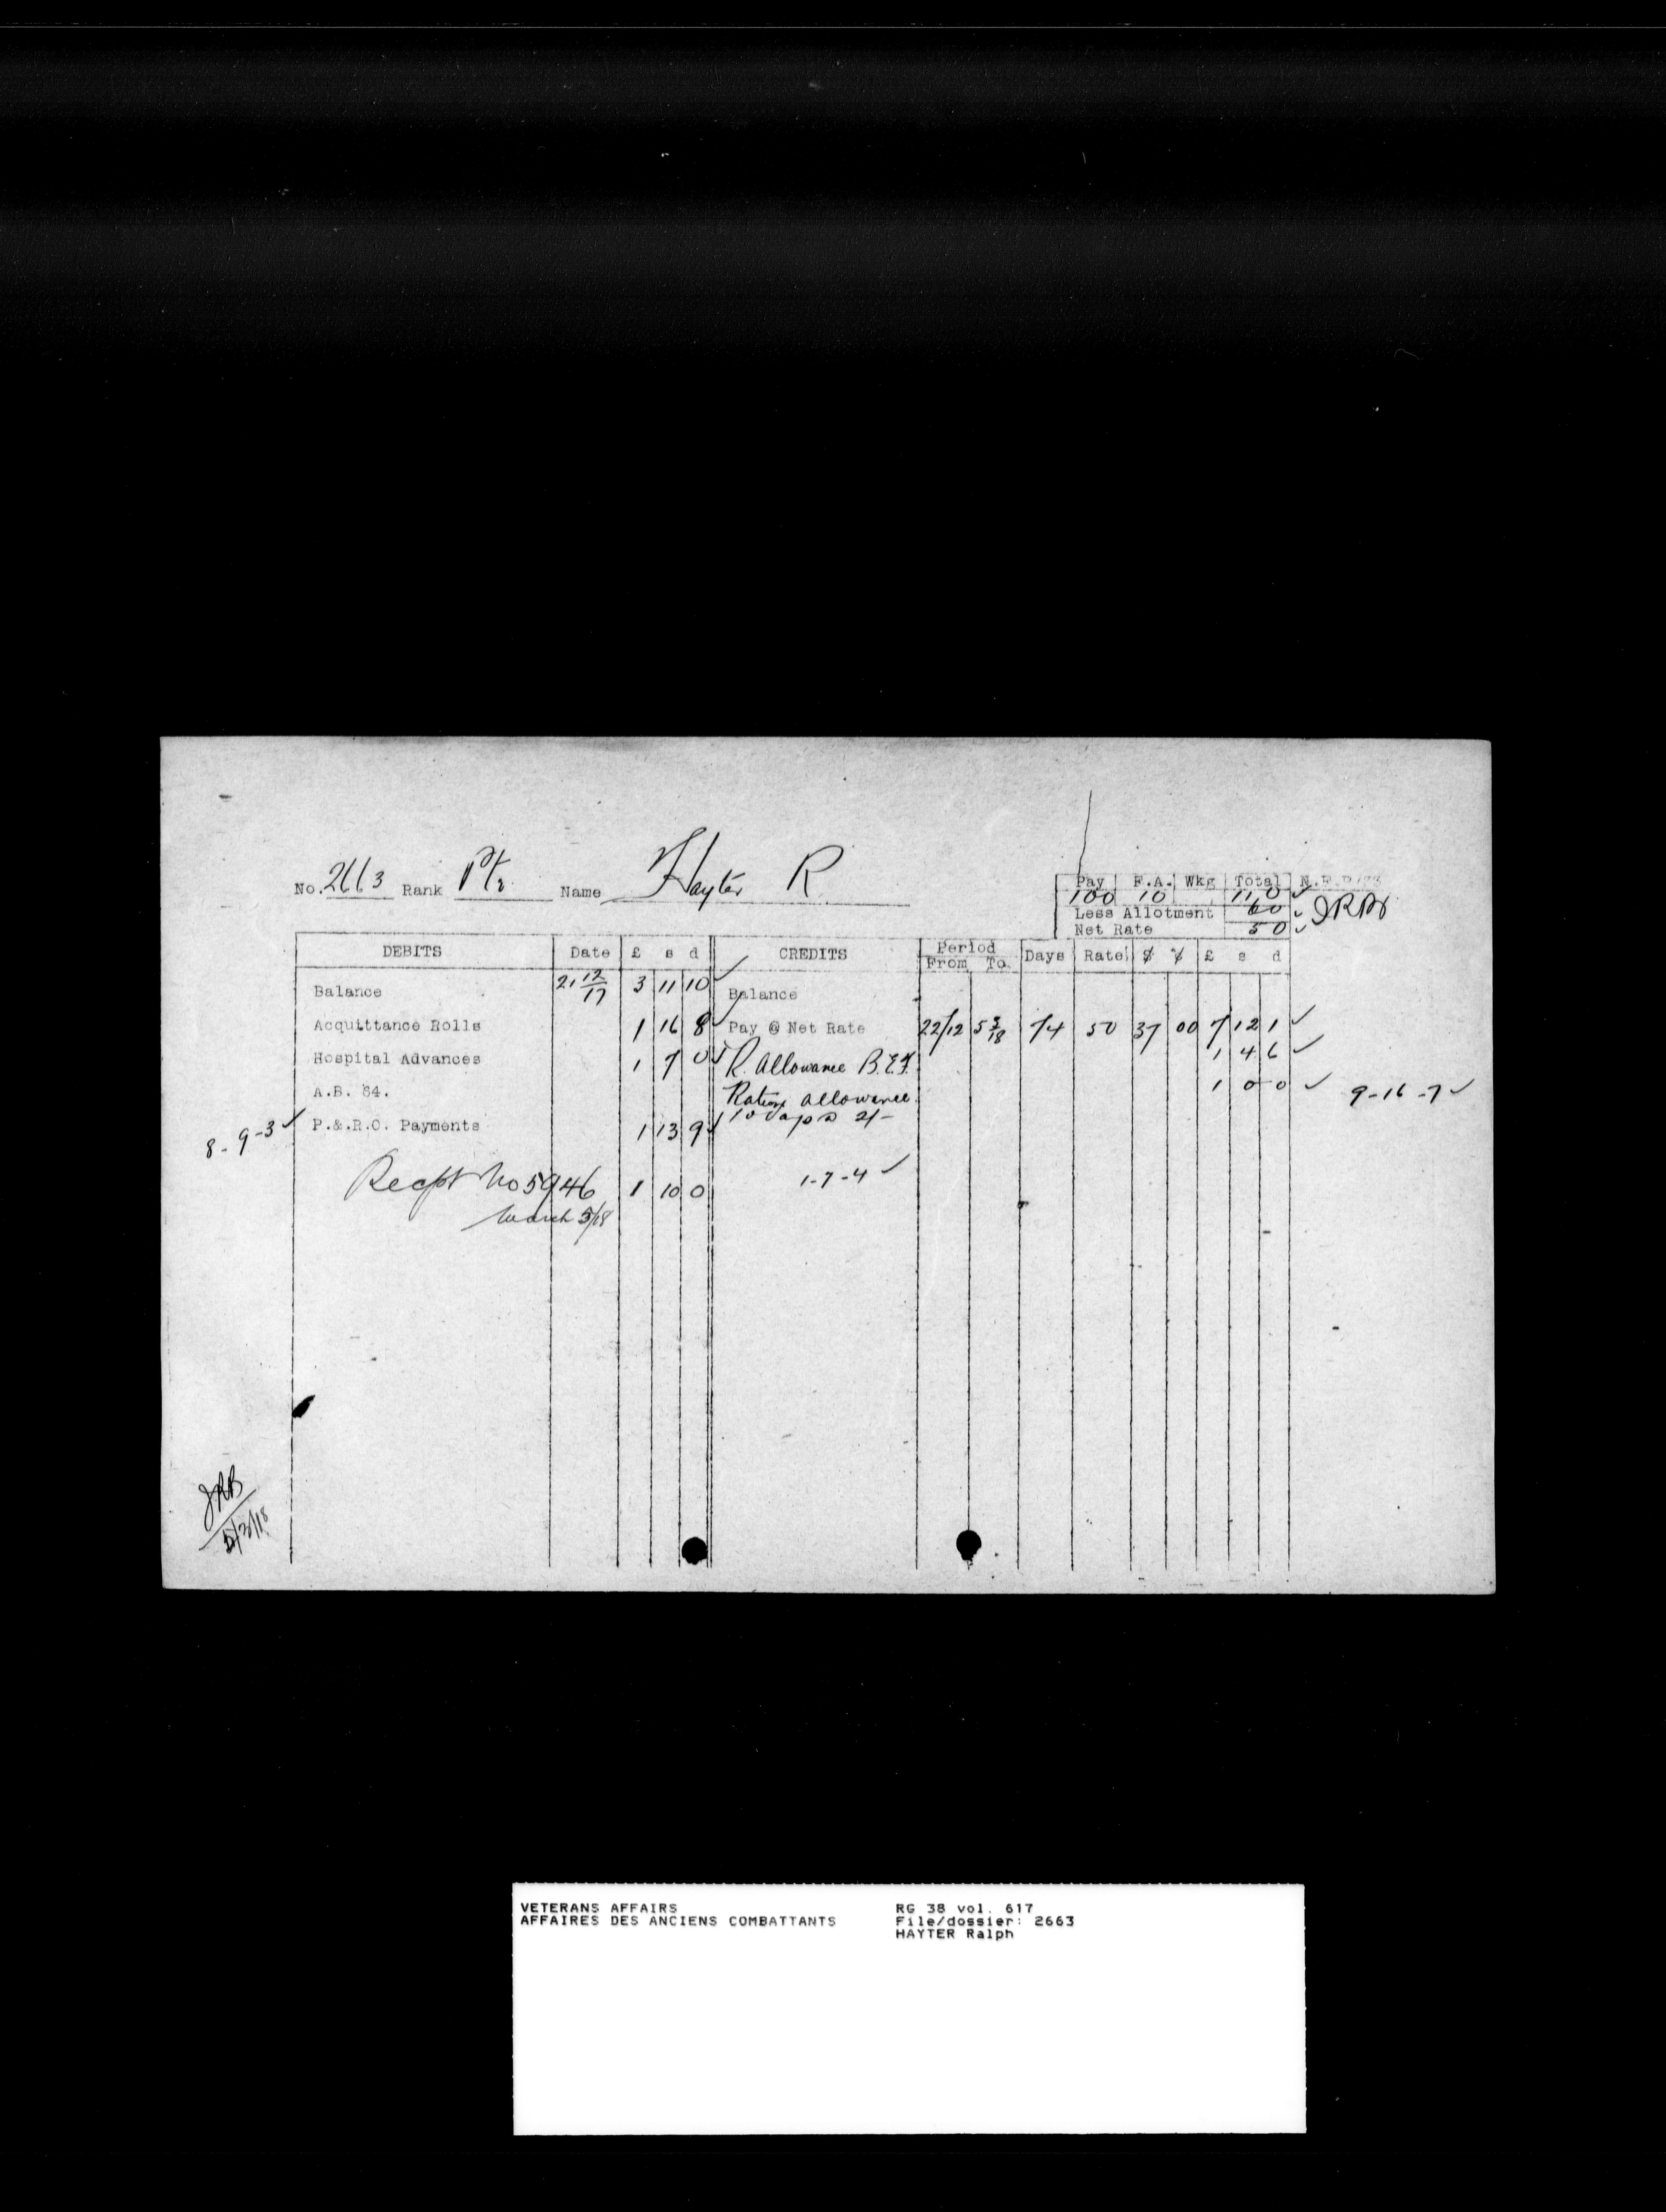 No. 2663 Rank Pte. Name Hayter R
Pay F.A. Wkg Total N.F.P/73
100 10 110 ✓
Less Allotment 60 ✓
Net Rate 50 ✓
DEBITS Date £ s d CREDITS Period From To Days Rate $ ¢ £ s d
Balance 21 12/17 3 11 10 ✓ Balance
Acquittance Rolls 1 16 8 ✓ Pay @ Net Rate 22/12 5 3/18 74 50 37 00 7 12 1 ✓
Hospital Advances 1 7 0 ✓ R. Allowance B.E.F. 1 4 6 ✓
A.B. 64. Ration allowance 1 0 0 ✓ 9-16-7 ✓
10 days @ 2/-
8-9-3 ✓ P.&.R.O. Payments 1 13 9 ✓
Recpt No 5946 1 10 0 1-7-4 ✓
March 5/18
JRB
5/3/18
VETERANS AFFAIRS RG 38 vol. 617
AFFAIRES DES ANCIENS COMBATTANTS File/dossier: 2663
HAYTER Ralph